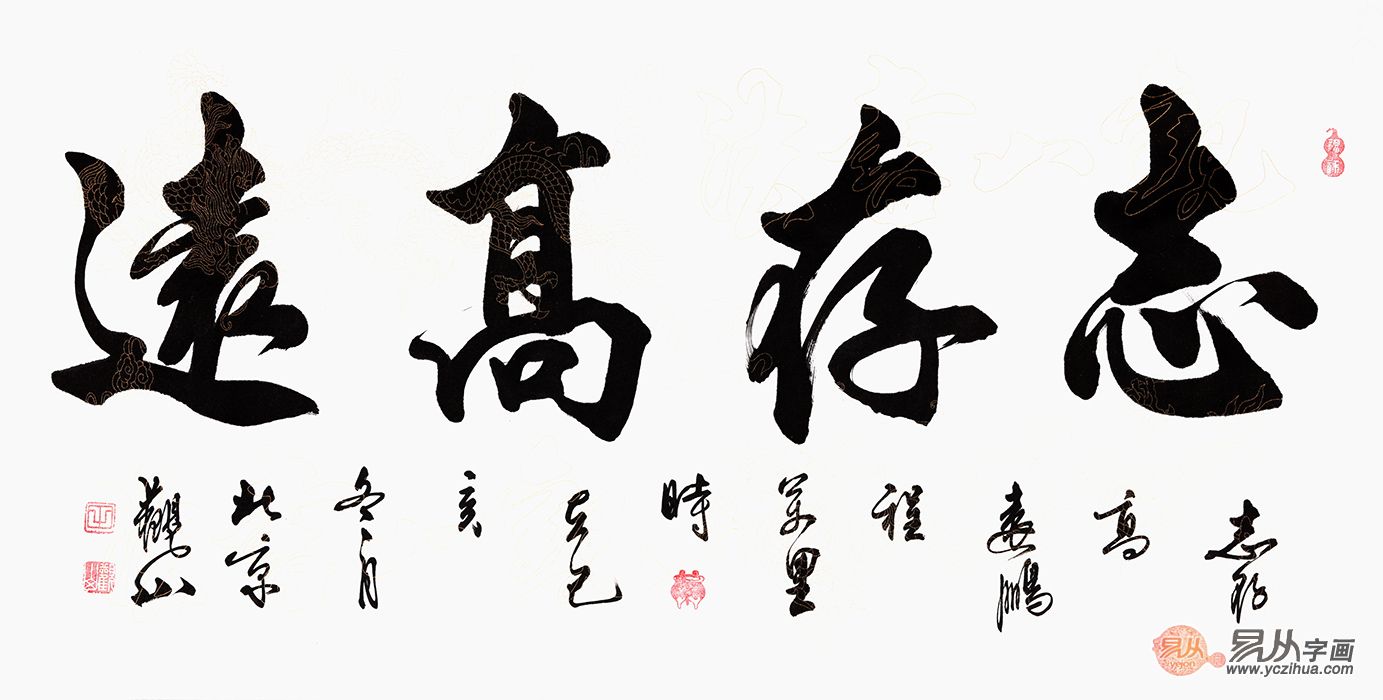 志存高遠
志存高遠鵬程萬里時在己亥冬月北京觀山
易从字画
www.yczihua.com
易从